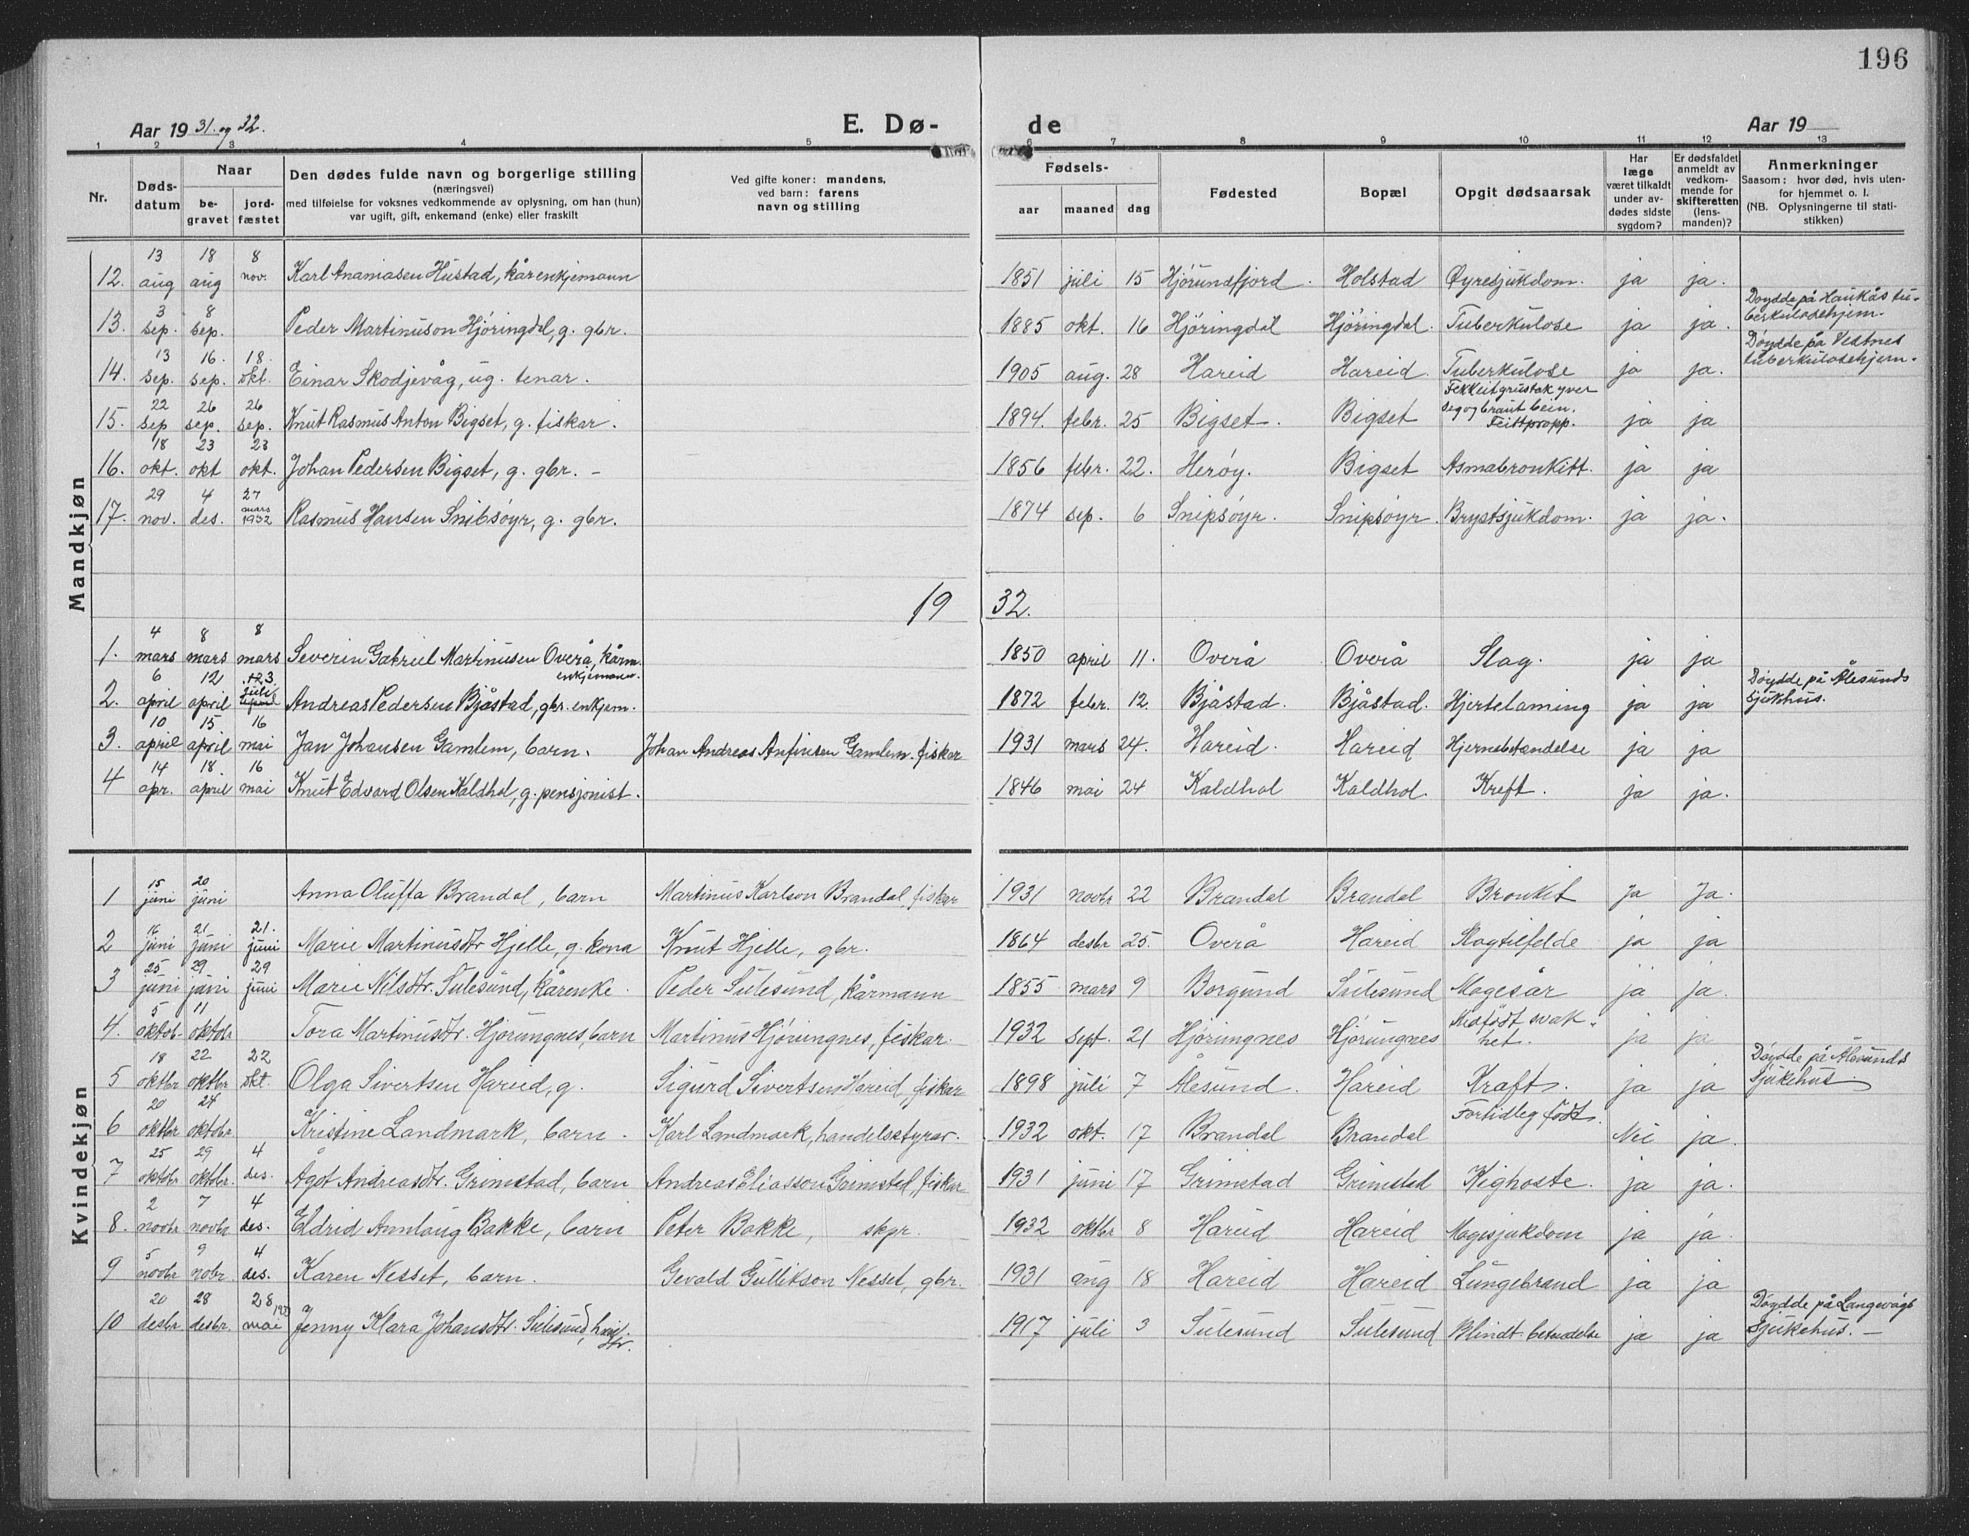 196
Aar 19 31. og 32.
E. Dø-
de
Aar 19
1 2 3 4 5 6 7 8 9 10 11 12 13
Nr.
Døds-
datum
Naar
be-
gravet
jord-
fæstet
Den dødes fulde navn og borgerlige stilling
(næringsvei)
med tilføielse for voksnes vedkommende av oplysning, om han (hun)
var ugift, gift, enkemand (enke) eller fraskilt
Ved gifte koner: mandens,
ved barn: farens
navn og stilling
Fødsels-
aar maaned dag
Fødested
Bopæl
Opgit dødsaarsak
Har
læge
været tilkaldt
under av-
dødes sidste
sygdom?
Er dødsfaldet
anmeldt av
vedkom-
mende for
skifteretten
(lens-
manden)?
Anmerkninger
Saasom: hvor død, hvis uten-
for hjemmet o. l.
(NB. Oplysningerne til stati-
stikken)
Mandkjøn
12. 13 aug 18 aug 8 nov. Karl Ananiasen Hustad, kårenkjemann 1851 juli 15 Hjørundfjord. Holstad Øyresjukdom. ja ja.
13. 3 sep. 8 sep. Peder Martinuson Hjøringdal, g. gbr. 1885 okt. 16 Hjøringdal Hjøringdal. Tuberkulose ja ja. Døydde på Haukås tu-
berkulosehjem.
14. 13 sep. 16. sep. 18. okt. Einar Skodjevåg, ug. tenar. 1905 aug. 28 Hareid Hareid. Tuberkulose ja ja. Døydde på Vestnes
tuberkulosehjem.
15. 22 sep 26 sep. 26 sep. Knut Rasmus Anton Bigset, g. fiskar. 1894. febr. 25 Bigset. Bigset Fekk eit grustak yver
seg og braut bein.
Feittpropp. ja ja
16. 18 okt. 23 okt 23 okt. Johan Pedersen Bigset, g. gbr. - 1856 febr. 22. Herøy. Bigset Asmabronkitt. ja ja
17. 29 nov. 4 des. 27 mars 1932 Rasmus Hansen Snibsøyr, g. gbr. 1874 sep. 6 Snipsøyr. Snipsøyr. Brystsjukdom. ja ja.
19 32.
1. 4 mars 8 mars 8 mars Severin Gabriel Martinusen Overå, kårm.
enkjemann. 1850 april 11. Overå Overå Slag. ja ja
2. 6 april 12 april 3. juli Andreas Pedersen Bjåstad, gbr. enkjem. 1872 febr. 12. Bjåstad. Bjåstad. Hjertelaming ja ja Døydde på Ålesunds
sjukhus.
3. 10 april 15 april 16 mai Jan Johansen Gamlem, barn. Johan Andreas Anfinsen Gamlem. fiskar 1931 mars 24. Hareid. Hareid Hjernebetendelse ja ja
4 14 apr. 18. april 16 mai Knut Edvard Olsen Kaldhol, g. pensjonist. 1846 mai 24 Kaldhol Kaldhol. Kreft. ja ja.
Kvindekjøn
1 15 juni 20 juni Anna Oluffa Brandal, barn Martinus Karlson Brandal, fiskar 1931 novbr 22 Brandal Brandal Bronkit Ja Ja.
2 16 juni 21 juni 21. juni Marie Martinusdtr Hjelle, g. kona Knut Hjelle, gbr. 1864 desbr 25. Overå Hareid Slagtilfelde ja ja
3 25 juni 29 juni 29 juni Marie Nilsdtr. Sulesund, kårenke. Peder Sulesund, kårmann 1855 mars 9 Borgund Sulesund Magesår ja ja.
4. 5 oktob- 11 oktobr Tora Martinusdtr. Hjørungnes, barn Martinus Hjørungnes, fiskar. 1932 sept. 21 Hjørungnes Hjørungnes Medfødt svak-
het. ja ja
5 18 oktbr 22 oktbr 22 okt. Olga Sivertsen Hareid, g. Sigurd Sivertsen Hareid, fiskar 1898 juli 7 Ålesund. Hareid Kraft. ja ja Døydde på Ålesunds
Sjukehus.
6 20 oktbr 24 oktobr Kristine Landmark, barn. Karl Landmark, handelsstyrar. 1932 okt. 17 Brandal Brandal Fortidleg født. Nei ja.
7 25 oktobr 29 oktbr. 4 des. Ågot Andreasdtr. Grimstad, barn Andreas Eliasson Grimstad, fiskar 1931 juni 17 Grimstad Grimstad Kighoste. ja ja.
8. 2 novbr 7 novbr 4 des. Eldrid Annlaug Bakke, barn Peter Bakke, skpr. 1932 oktbr 8 Hareid Hareid Magesjukdom ja ja.
9 5 novbr 9 nobr. 4 des. Karen Nesset, barn. Gevald Gulliksen Nesset, gbr. 1931 aug 18 Hareid Hareid Lungebrand ja ja
10 20 desbr 28 desbr. 28 mai Jenny Klara Johansdtr. Sulesund, 1917 juli 3 Sulesund Sulesund Blindt. betendelse ja ja Døydde på Langevågs
Sjukehus. -